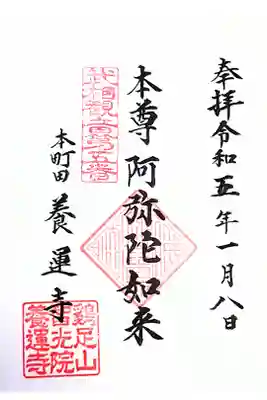 奉拝令和五年一月八日
本尊阿弥陀如来
武相観音第五番
本町田養運寺
鶏足山
日光院
養運寺